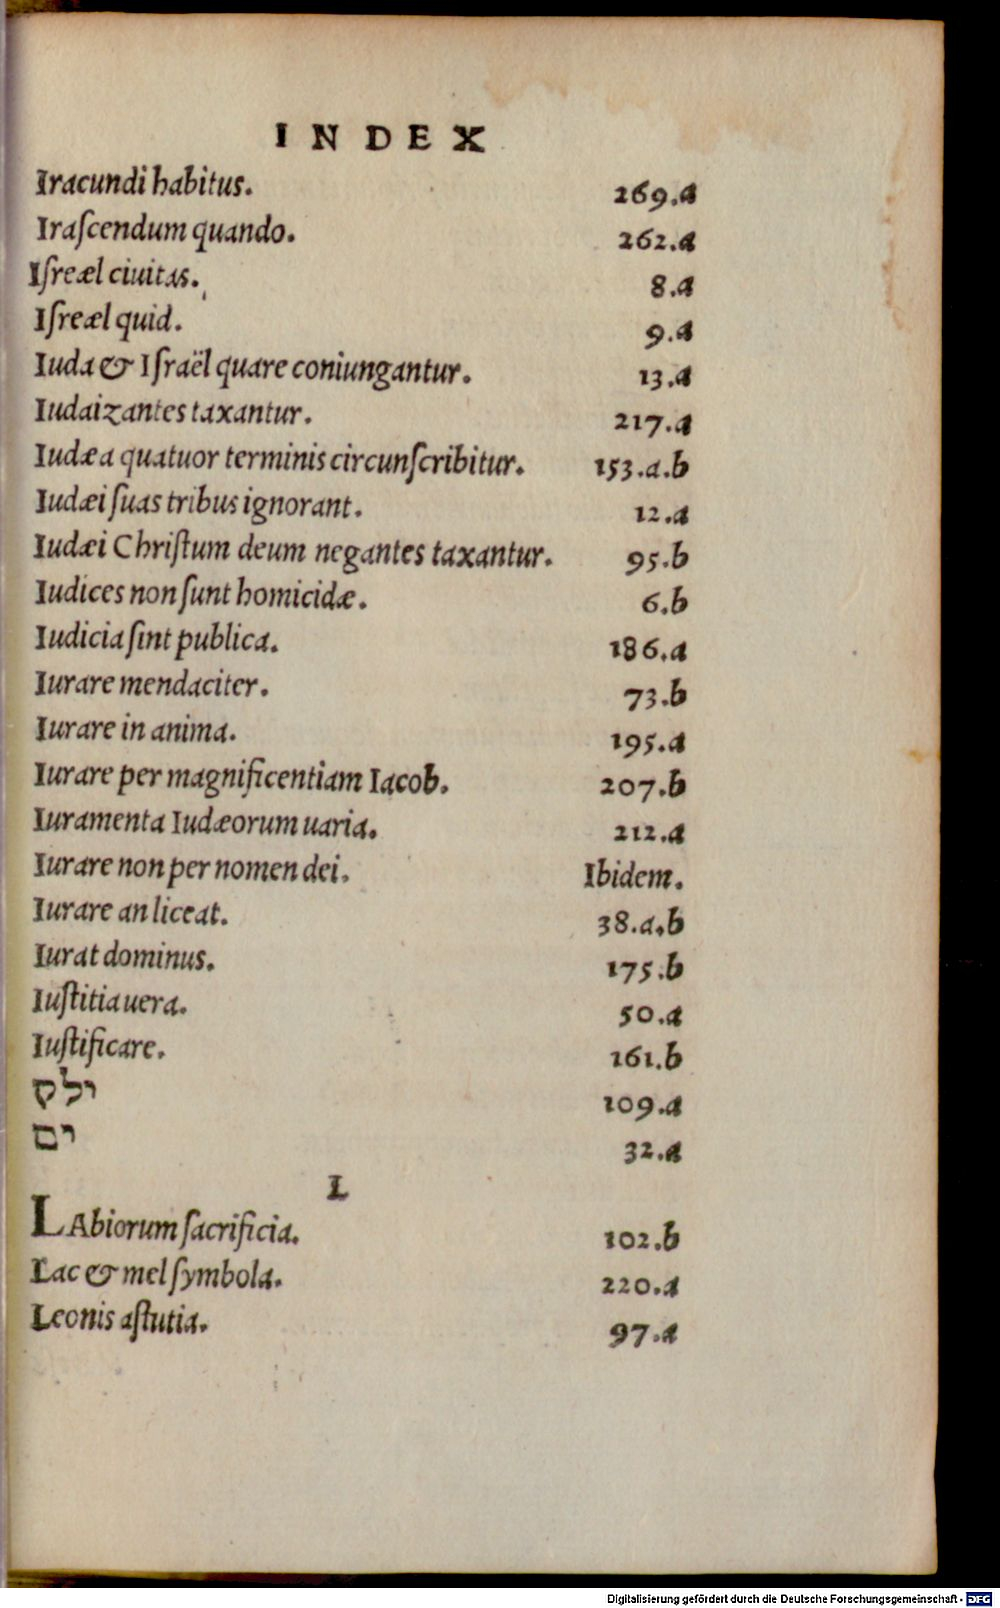 INDEX
Iracundi habitus. 269.a
Iraſcendum quando. 262.a
Iſreæl ciuitas. 8.a
Iſreæl quid. 9.a
Iuda & Iſraël quare coniungantur. 13.a
Iudaizantes taxantur. 217.a
Iudæa quatuor terminis circunſcribitur. 153.a.b
Iudæi ſuas tribus ignorant. 12.a
Iudæi Chriſtum deum negantes taxantur. 95.b
Iudices non ſunt homicidæ. 6.b
Iudicia ſint publica. 186.a
Iurare mendaciter. 73.b
Iurare in anima. 195.a
Iurare per magnificentiam Iacob. 207.b
Iuramenta Iudæorum uaria. 212.a
Iurare non per nomen dei. Ibidem.
Iurare an liceat. 38.a.b
Iurat dominus. 175.b
Iuſtitia uera. 50.a
Iuſtificare. 161.b
ילק 109.a
ים 32.a
L
LAbiorum ſacrificia. 102.b
Lac & mel ſymbola. 220.a
Leonis aſtutia. 97.a
Digitalisierung gefördert durch die Deutsche Forschungsgemeinschaft - DFG